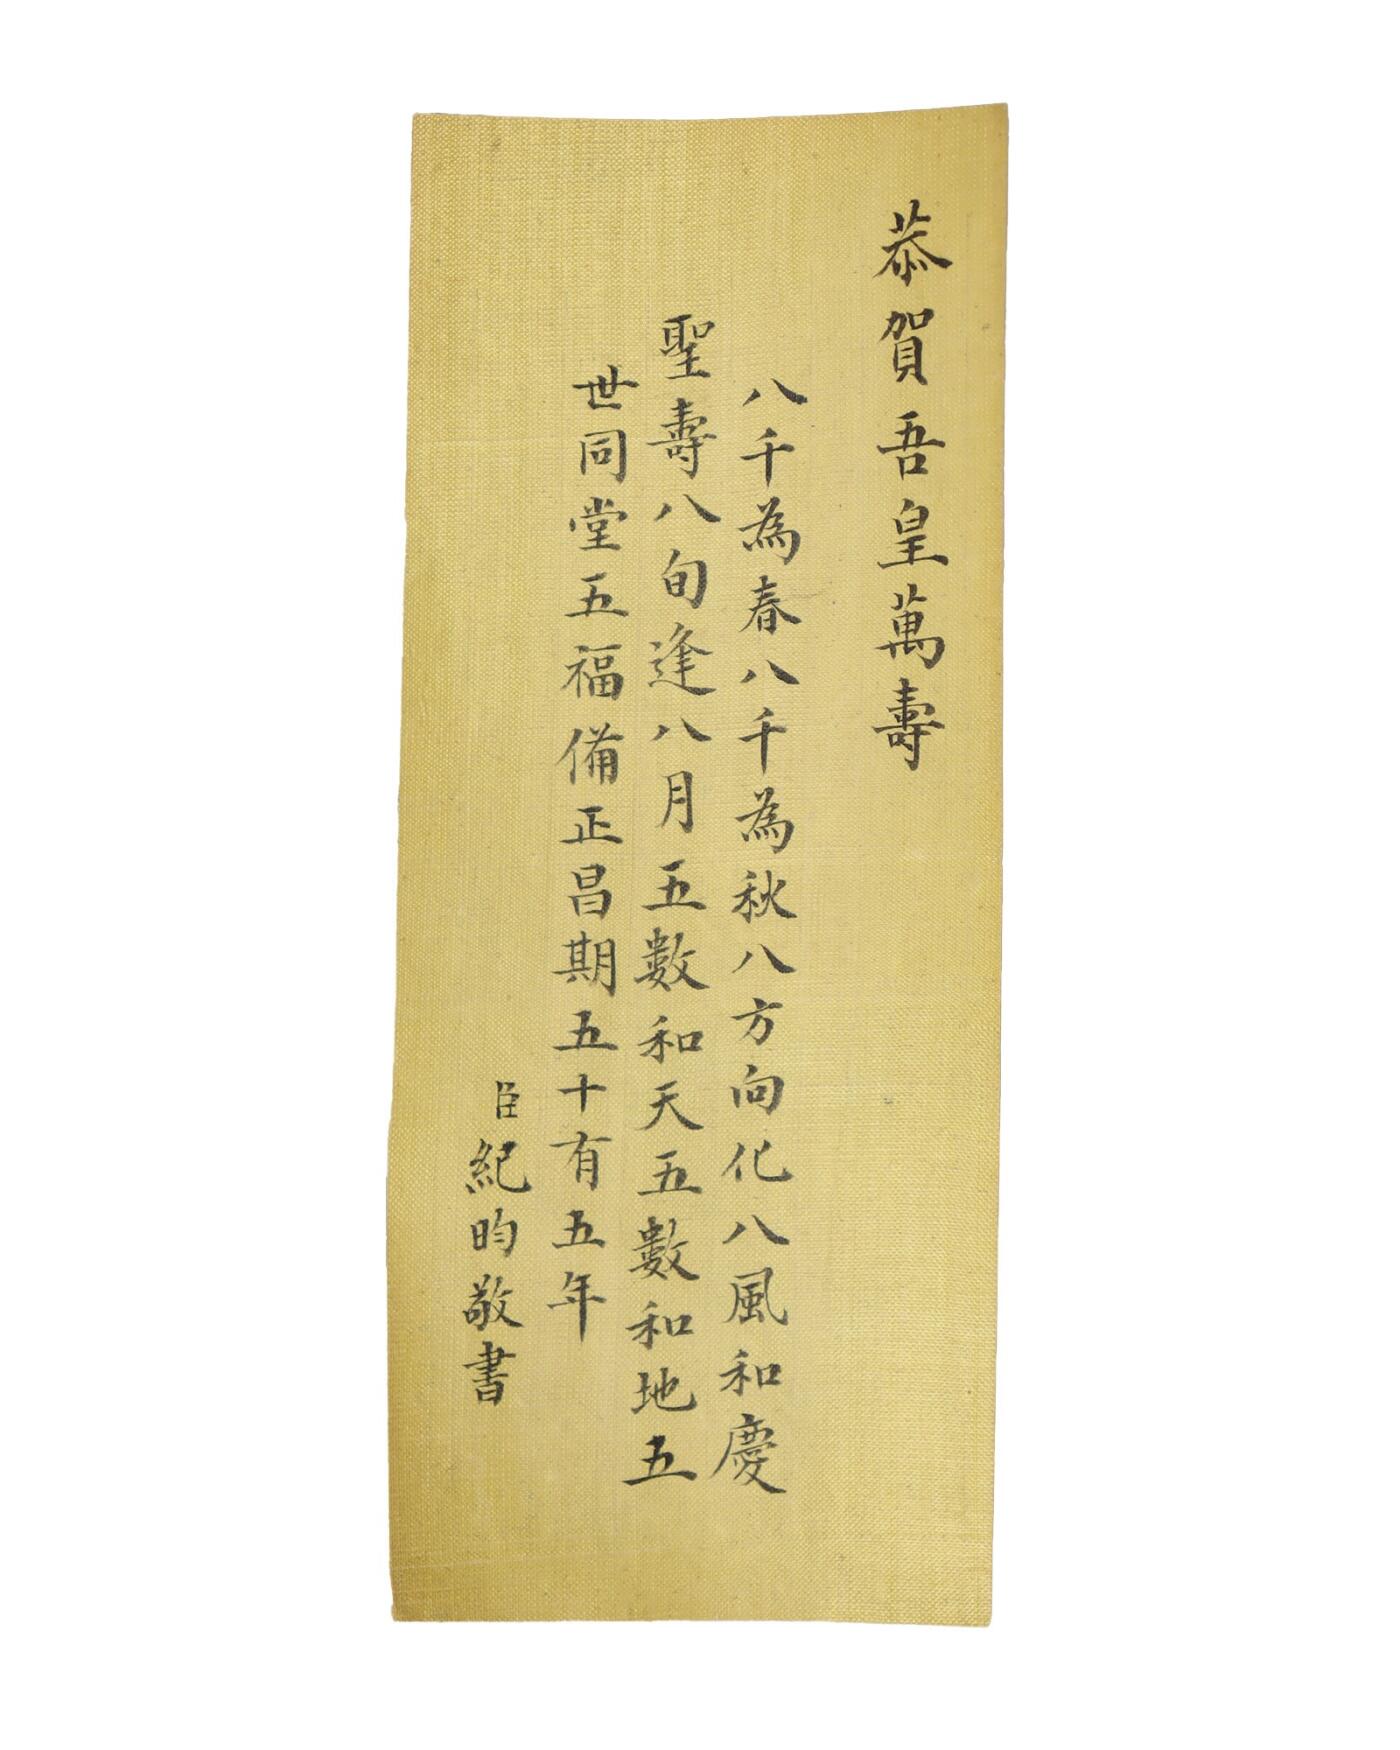 恭賀吾皇萬壽
八千為春八千為秋八方向化八風和慶
聖壽八旬逢八月五數和天五數和地五
世同堂五福備正昌期五十有五年
臣紀昀敬書